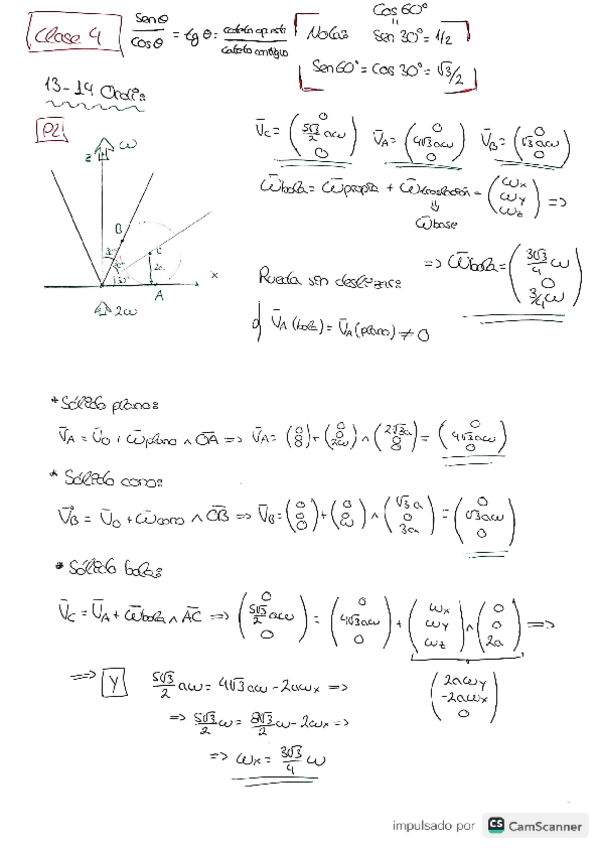 Clase 4
Senθ / Cosθ = tgθ = cateto opuesto / cateto contiguo
Notas
Cos 60°
"
Sen 30° = 1/2
Sen 60° = Cos 30° = √3/2
13-14 Ordi:
P2
V̄c = (0, 5√3/2 aω, 0) V̄A = (0, 4√3aω, 0) V̄B = (0, √3aω, 0)
z ω
ω̄bola = ω̄propia + ω̄traslación = (ωx, ωy, ωz) =>
⇓
ω̄base
B
30°
30°
30°
C
2a
x
A
2ω
=> ω̄bola = (3√3/4 ω, 0, 3/4 ω)
Rueda sin deslizar:
V̄A(bola) = V̄A(plano) ≠ 0
* Sólido plano:
V̄A = V̄o + ω̄plano ∧ OA => V̄A = (0, 0, 0) + (0, 0, 2ω) ∧ (2√3a, 0, 0) = (0, 4√3aω, 0)
* Sólido cono:
V̄B = V̄o + ω̄cono ∧ OB => V̄B = (0, 0, 0) + (0, 0, ω) ∧ (√3a, 0, 3a) = (0, √3aω, 0)
* Sólido bola:
V̄c = V̄A + ω̄bola ∧ AC => (0, 5√3/2 aω, 0) = (0, 4√3aω, 0) + (ωx, ωy, ωz) ∧ (0, 0, 2a) =>
(2aωy, -2aωx, 0)
=> Y 5√3/2 aω = 4√3aω - 2aωx =>
=> 5√3/2 ω = 8√3/2 ω - 2ωx =>
=> ωx = 3√3/4 ω
impulsado por CS CamScanner